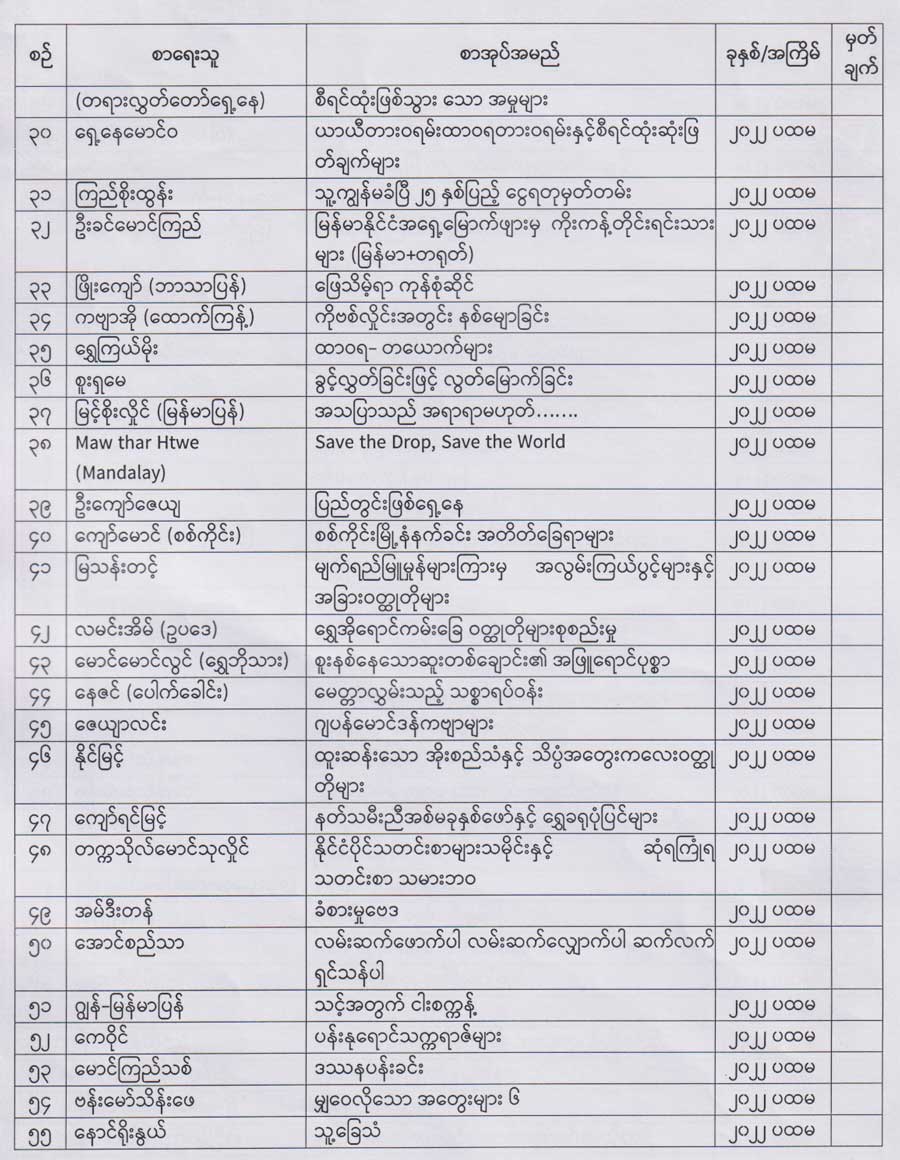 စဉ် စာရေးသူ စာအုပ်အမည် ခုနှစ်/အကြိမ် မှတ်
ချက်
(တရားလွှတ်တော်ရှေ့နေ) စီရင်ထုံးဖြစ်သွား သော အမှုများ
၃၀ ရှေ့နေမောင်ဝ ယာယီတားဝရမ်းထာဝရတားဝရမ်းနှင့်စီရင်ထုံးဆုံးဖြ ၂၀၂၂ ပထမ
တ်ချက်များ
၃၁ ကြည်စိုးထွန်း သူ့ကျွန်မခံပြီ ၂၅ နှစ်ပြည့် ငွေရတုမှတ်တမ်း ၂၀၂၂ ပထမ
၃၂ ဦးခင်မောင်ကြည် မြန်မာနိုင်ငံအရှေ့မြောက်ဖျားမှ ကိုးကန့်တိုင်းရင်းသား ၂၀၂၂ ပထမ
များ (မြန်မာ+တရုတ်)
၃၃ ဖြိုးကျော် (ဘာသာပြန်) ဖြေသိမ့်ရာ ကုန်စုံဆိုင် ၂၀၂၂ ပထမ
၃၄ ကဗျာအို (ထောက်ကြန့်) ကိုဗစ်လှိုင်းအတွင်း နစ်မျောခြင်း ၂၀၂၂ ပထမ
၃၅ ရွှေကြယ်မိုး ထာဝရ– တယောက်များ ၂၀၂၂ ပထမ
၃၆ စူးရှမေ ခွင့်လွှတ်ခြင်းဖြင့် လွတ်မြောက်ခြင်း ၂၀၂၂ ပထမ
၃၇ မြင့်စိုးလှိုင် (မြန်မာပြန်) အသပြာသည် အရာရာမဟုတ်……. ၂၀၂၂ ပထမ
၃၈ Maw thar Htwe Save the Drop, Save the World ၂၀၂၂ ပထမ
(Mandalay)
၃၉ ဦးကျော်ဇေယျ ပြည်တွင်းဖြစ်ရှေ့နေ ၂၀၂၂ ပထမ
၄၀ ကျော်မောင် (စစ်ကိုင်း) စစ်ကိုင်းမြို့နံနက်ခင်း အတိတ်ခြေရာများ ၂၀၂၂ ပထမ
၄၁ မြသန်းတင့် မျက်ရည်မြူမှုန်များကြားမှ အလွမ်းကြယ်ပွင့်များနှင့် ၂၀၂၂ ပထမ
အခြားဝတ္ထုတိုများ
၄၂ လမင်းအိမ် (ဥပဒေ) ရွှေအိုရောင်ကမ်းခြေ ဝတ္ထုတိုများစုစည်းမှု ၂၀၂၂ ပထမ
၄၃ မောင်မောင်လွင် (ရွှေဘိုသား) စူးနစ်နေသောဆူးတစ်ချောင်း၏ အဖြူရောင်ပုစ္ဆာ ၂၀၂၂ ပထမ
၄၄ နေဇင် (ပေါက်ခေါင်း) မေတ္တာလွှမ်းသည့် သစ္စာရပ်ဝန်း ၂၀၂၂ ပထမ
၄၅ ဇေယျာလင်း ဂျပန်မောင်ဒန်ကဗျာများ ၂၀၂၂ ပထမ
၄၆ နိုင်မြင့် ထူးဆန်းသော အိုးစည်သံနှင့် သိပ္ပံအတွေးကလေးဝတ္ထု ၂၀၂၂ ပထမ
တိုများ
၄၇ ကျော်ရင်မြင့် နတ်သမီးညီအစ်မခုနှစ်ဖော်နှင့် ရွှေခရုပုံပြင်များ ၂၀၂၂ ပထမ
၄၈ တက္ကသိုလ်မောင်သုလှိုင် နိုင်ငံပိုင်သတင်းစာများသမိုင်းနှင့် ဆုံရကြုံရ ၂၀၂၂ ပထမ
သတင်းစာ သမားဘဝ
၄၉ အမ်ဒီးတန် ခံစားမှုဗေဒ ၂၀၂၂ ပထမ
၅၀ အောင်စည်သာ လမ်းဆက်ဖောက်ပါ လမ်းဆက်လျှောက်ပါ ဆက်လက် ၂၀၂၂ ပထမ
ရှင်သန်ပါ
၅၁ ဂျွန်–မြန်မာပြန် သင့်အတွက် ငါးစက္ကန့် ၂၀၂၂ ပထမ
၅၂ ကေဝိုင် ပန်းနုရောင်သက္ကရာဇ်များ ၂၀၂၂ ပထမ
၅၃ မောင်ကြည်သစ် ဒဿနပန်းခင်း ၂၀၂၂ ပထမ
၅၄ ဗန်းမော်သိန်းဖေ မျှဝေလိုသော အတွေးများ ၆ ၂၀၂၂ ပထမ
၅၅ နောင်ရိုးနွယ် သူ့ခြေသံ ၂၀၂၂ ပထမ